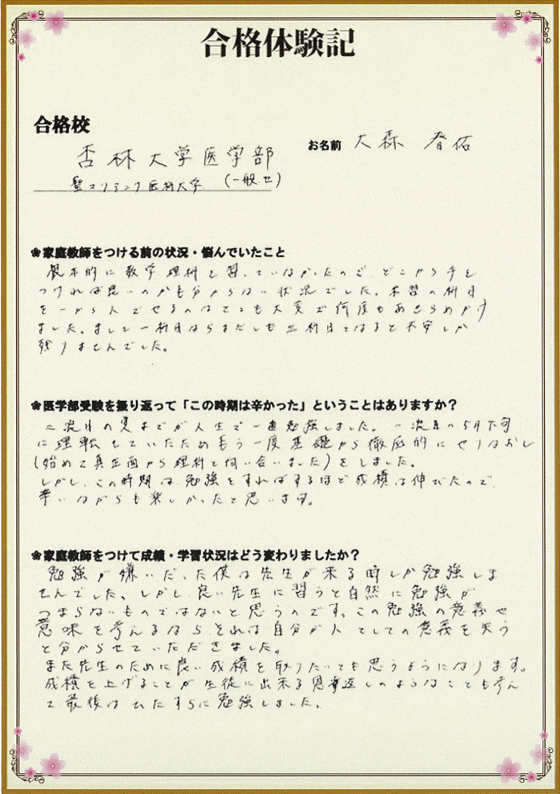 合格体験記
合格校
杏林大学医学部
(一般セ)
聖マリアンナ医科大学
お名前 大森 春佑
❀家庭教師をつける前の状況・悩んでいたこと
根本的に数学理科を習っていなかったので、どこから手を
つければ良いのかも分からない状況でした。未習の科目
を一から入できるのはとても大変で何度もあきらめかけ
ました。まして一科目ならまだしも三科目ではると不安しか
残りませんでした。
❀医学部受験を振り返って「この時期は辛かった」ということはありますか?
二浪目の夏までが人生で一番勉強しました。一浪目の5月下旬
に理転をしていたためもう一度基礎から徹底的にやりなおし
(始めて真正面から理科と向い合いました)をしました。
しかし、この時期は勉強をすればするほど成績は伸びたので、
辛いながらも楽しかったと思います。
❀家庭教師をつけて成績・学習状況はどう変わりましたか?
勉強が嫌いだった僕は先生が来る時しか勉強しま
せんでした。しかし、良い先生に習うと自然に勉強が
つまらないものではないと思うのです。この勉強の意義や
意味を考えるならそれは自分が人としての意義を失う
と分からせていただきました。
また先生のために良い成績を取りたいとも思うようになります。
成績を上げることが生徒に出来る恩返しのようなことも考え
て最後はひたすらに勉強しました。